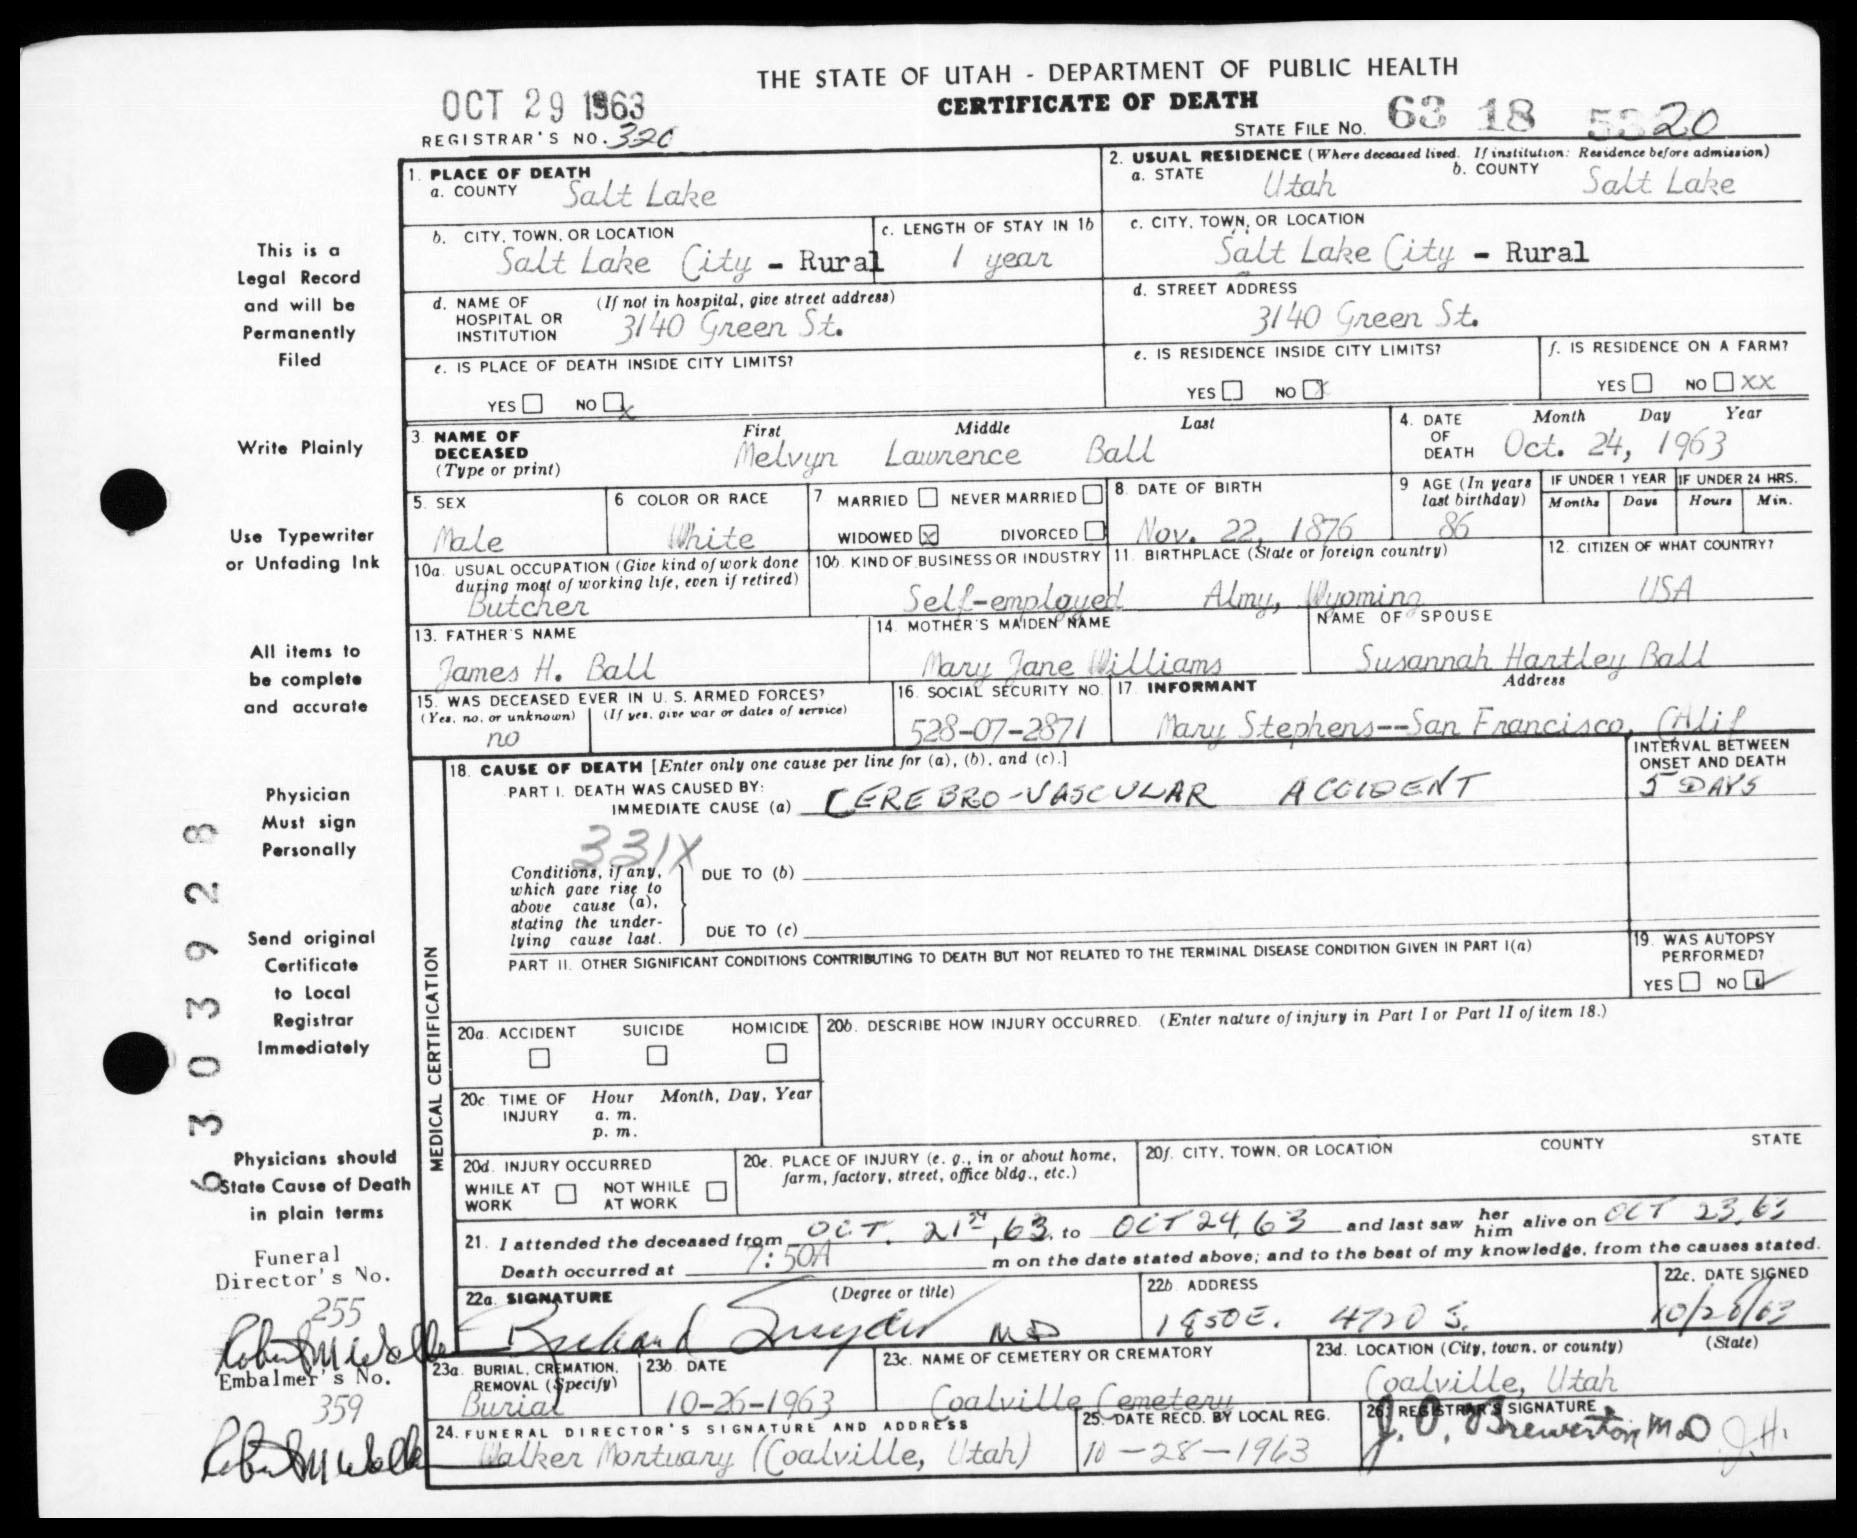 THE STATE OF UTAH - DEPARTMENT OF PUBLIC HEALTH
CERTIFICATE OF DEATH
OCT 29 1963
REGISTRAR'S NO. 320
STATE FILE NO. 63 18 20
This is a
Legal Record
and will be
Permanently
Filed
Write Plainly
Use Typewriter
or Unfading Ink
All items to
be complete
and accurate
Physician
Must sign
Personally
Send original
Certificate
to Local
Registrar
Immediately
Physicians should
State Cause of Death
in plain terms
6303928
Funeral
Director's No.
255
Robert M Walker
Embalmer's No.
359
Robert M Walker
1. PLACE OF DEATH
a. COUNTY Salt Lake
2. USUAL RESIDENCE (Where deceased lived. If institution: Residence before admission)
a. STATE Utah b. COUNTY Salt Lake
b. CITY, TOWN, OR LOCATION
Salt Lake City - Rural
c. LENGTH OF STAY IN 1b
1 year
c. CITY, TOWN, OR LOCATION
Salt Lake City - Rural
d. NAME OF HOSPITAL OR INSTITUTION (If not in hospital, give street address)
3140 Green St.
d. STREET ADDRESS
3140 Green St.
e. IS PLACE OF DEATH INSIDE CITY LIMITS?
YES NO X
e. IS RESIDENCE INSIDE CITY LIMITS?
YES NO X
f. IS RESIDENCE ON A FARM?
YES NO XX
3. NAME OF DECEASED (Type or print)
First Middle Last
Melvyn Lawrence Ball
4. DATE OF DEATH Month Day Year
Oct. 24, 1963
5. SEX
Male
6 COLOR OR RACE
White
7 MARRIED NEVER MARRIED
WIDOWED X DIVORCED
8. DATE OF BIRTH
Nov. 22, 1876
9 AGE (In years last birthday)
86
IF UNDER 1 YEAR IF UNDER 24 HRS.
Months Days Hours Min.
10a. USUAL OCCUPATION (Give kind of work done during most of working life, even if retired)
Butcher
10b. KIND OF BUSINESS OR INDUSTRY
Self-employed
11. BIRTHPLACE (State or foreign country)
Almy, Wyoming
12. CITIZEN OF WHAT COUNTRY?
USA
13. FATHER'S NAME
James H. Ball
14. MOTHER'S MAIDEN NAME
Mary Jane Williams
NAME OF SPOUSE
Susannah Hartley Ball
15. WAS DECEASED EVER IN U. S. ARMED FORCES?
(Yes, no, or unknown) (If yes, give war or dates of service)
no
16. SOCIAL SECURITY NO.
528-07-2871
17. INFORMANT Address
Mary Stephens--San Francisco, Calif
MEDICAL CERTIFICATION
18. CAUSE OF DEATH [Enter only one cause per line for (a), (b), and (c).]
PART I. DEATH WAS CAUSED BY:
IMMEDIATE CAUSE (a) CEREBRO-VASCULAR ACCIDENT
INTERVAL BETWEEN ONSET AND DEATH
5 DAYS
331X
Conditions, if any, which gave rise to above cause (a), stating the underlying cause last.
DUE TO (b)
DUE TO (c)
PART II. OTHER SIGNIFICANT CONDITIONS CONTRIBUTING TO DEATH BUT NOT RELATED TO THE TERMINAL DISEASE CONDITION GIVEN IN PART I(a)
19. WAS AUTOPSY PERFORMED?
YES NO
20a. ACCIDENT SUICIDE HOMICIDE
20b. DESCRIBE HOW INJURY OCCURRED. (Enter nature of injury in Part I or Part II of item 18.)
20c TIME OF INJURY Hour Month, Day, Year
a. m.
p. m.
20d. INJURY OCCURRED
WHILE AT WORK NOT WHILE AT WORK
20e. PLACE OF INJURY (e. g., in or about home, farm, factory, street, office bldg., etc.)
20f. CITY, TOWN, OR LOCATION COUNTY STATE
21. I attended the deceased from OCT. 21st, 63, to OCT 24, 63 and last saw her him alive on OCT 23, 63
Death occurred at 7:50A m on the date stated above; and to the best of my knowledge, from the causes stated.
22a. SIGNATURE (Degree or title)
Richard Snyder MD
22b. ADDRESS
1850 E. 4720 S.
22c. DATE SIGNED
10/26/63
23a. BURIAL, CREMATION, REMOVAL (Specify)
Burial
23b. DATE
10-26-1963
23c. NAME OF CEMETERY OR CREMATORY
Coalville Cemetery
23d. LOCATION (City, town, or county) (State)
Coalville, Utah
24. FUNERAL DIRECTOR'S SIGNATURE AND ADDRESS
Walker Mortuary (Coalville, Utah)
25. DATE RECD. BY LOCAL REG.
10-28-1963
26. REGISTRAR'S SIGNATURE
J. O. Brewerton, M.D J.H.